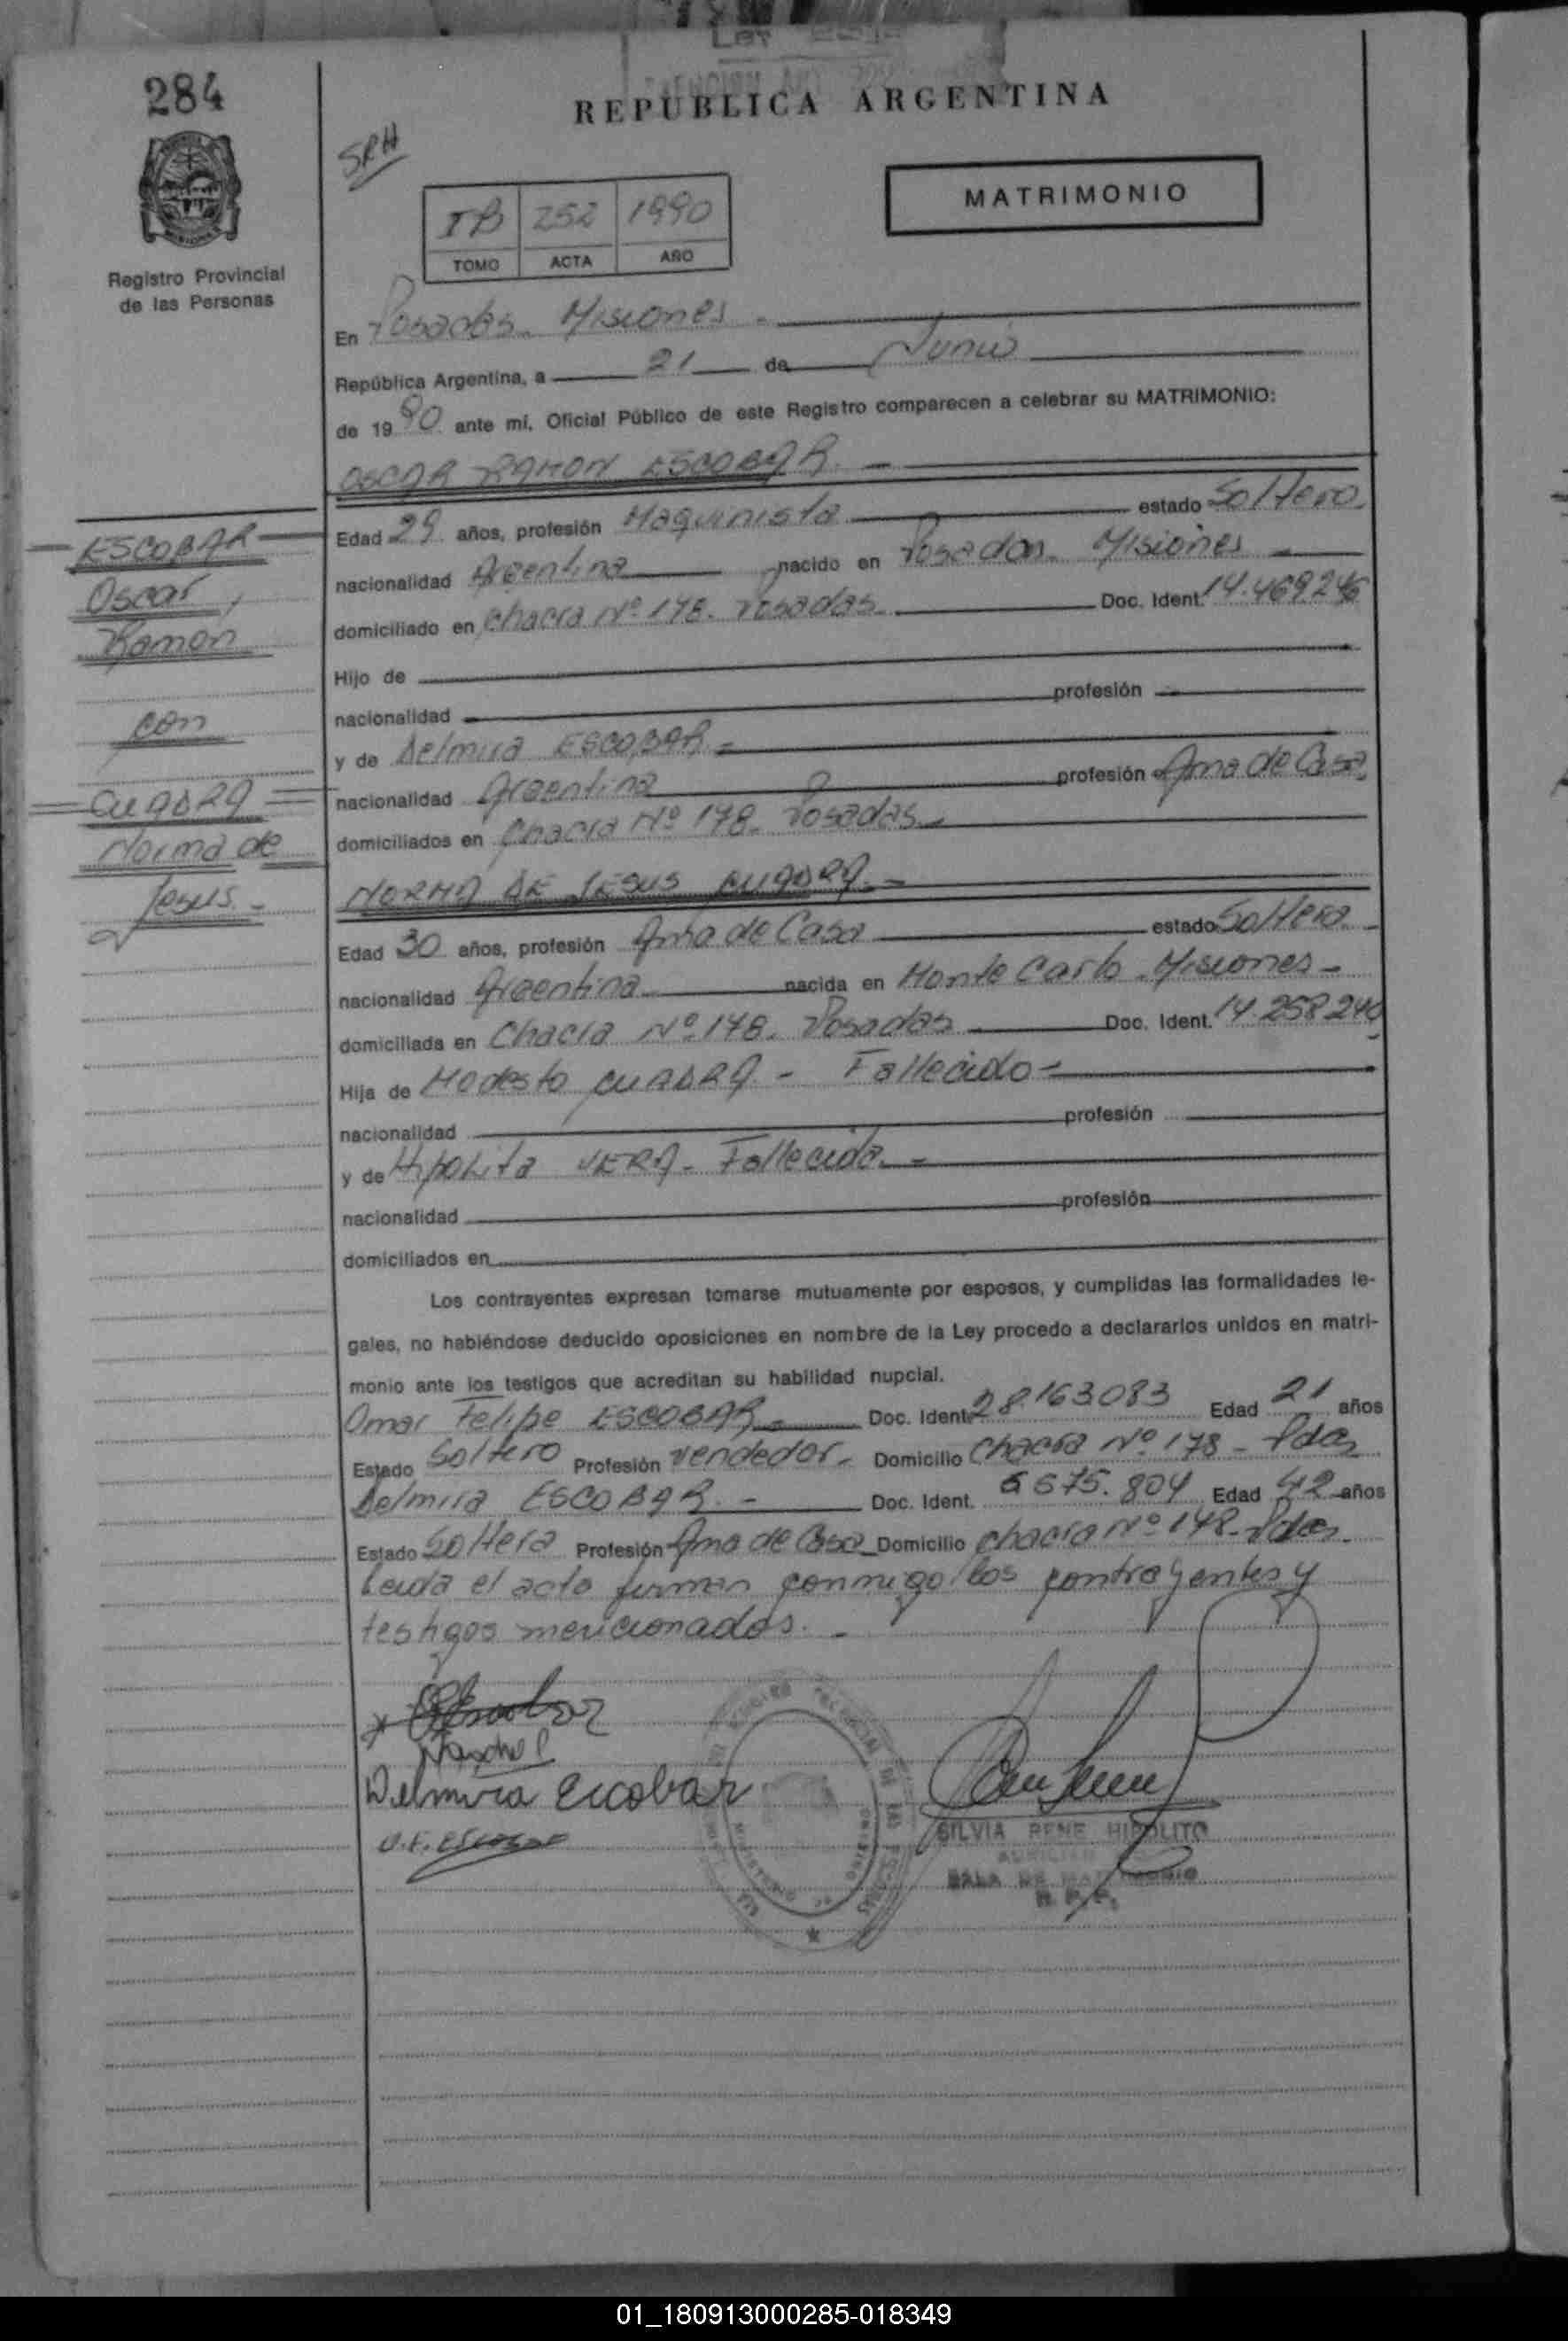 284
REPUBLICA ARGENTINA
SRH
MATRIMONIO
IB 252 1990
TOMO ACTA AÑO
Registro Provincial
de las Personas
En Posadas. Misiones -
República Argentina, a 21 de Junio
de 1990 ante mí, Oficial Público de este Registro comparecen a celebrar su MATRIMONIO:
OSCAR RAMON ESCOBAR. -
Edad 29 años, profesión Maquinista estado Soltero.
nacionalidad Argentina nacido en Posadas. Misiones -
domiciliado en Chacra Nº 178. Posadas. Doc. Ident. 14.469.246
Hijo de
nacionalidad profesión
y de Delmira ESCOBAR -
nacionalidad Argentina profesión Ama de Casa
domiciliados en Chacra Nº 178. Posadas -
ESCOBAR
Oscar,
Ramon
con
CUADRA
Norma de
Jesus. -
NORMA DE JESUS CUADRA. -
Edad 30 años, profesión Ama de Casa estado Soltera.
nacionalidad Argentina nacida en Monte Carlo - Misiones -
domiciliada en Chacra Nº 178. Posadas Doc. Ident. 14.258.240
Hija de Modesto CUADRA - Fallecido -
nacionalidad profesión
y de Hipolita VERA - Fallecida. -
nacionalidad profesión
domiciliados en
Los contrayentes expresan tomarse mutuamente por esposos, y cumplidas las formalidades le-
gales, no habiéndose deducido oposiciones en nombre de la Ley procedo a declararlos unidos en matri-
monio ante los testigos que acreditan su habilidad nupcial.
Omar Felipe ESCOBAR - Doc. Ident. 28.163.083 Edad 21 años
Estado Soltero Profesión Vendedor - Domicilio Chacra Nº 178 - Pdas
Delmira ESCOBAR. - Doc. Ident. 6 675.804 Edad 42 años
Estado Soltera Profesión Ama de Casa Domicilio Chacra Nº 178 - Pdas.
Leida el acta firman conmigo los contrayentes y
testigos mencionados. -
Delmira Escobar
O.F. ESCOBAR
SILVIA RENE HIPOLITO
SALA DE MATRIMONIO
R. P. P.
01_180913000285-018349